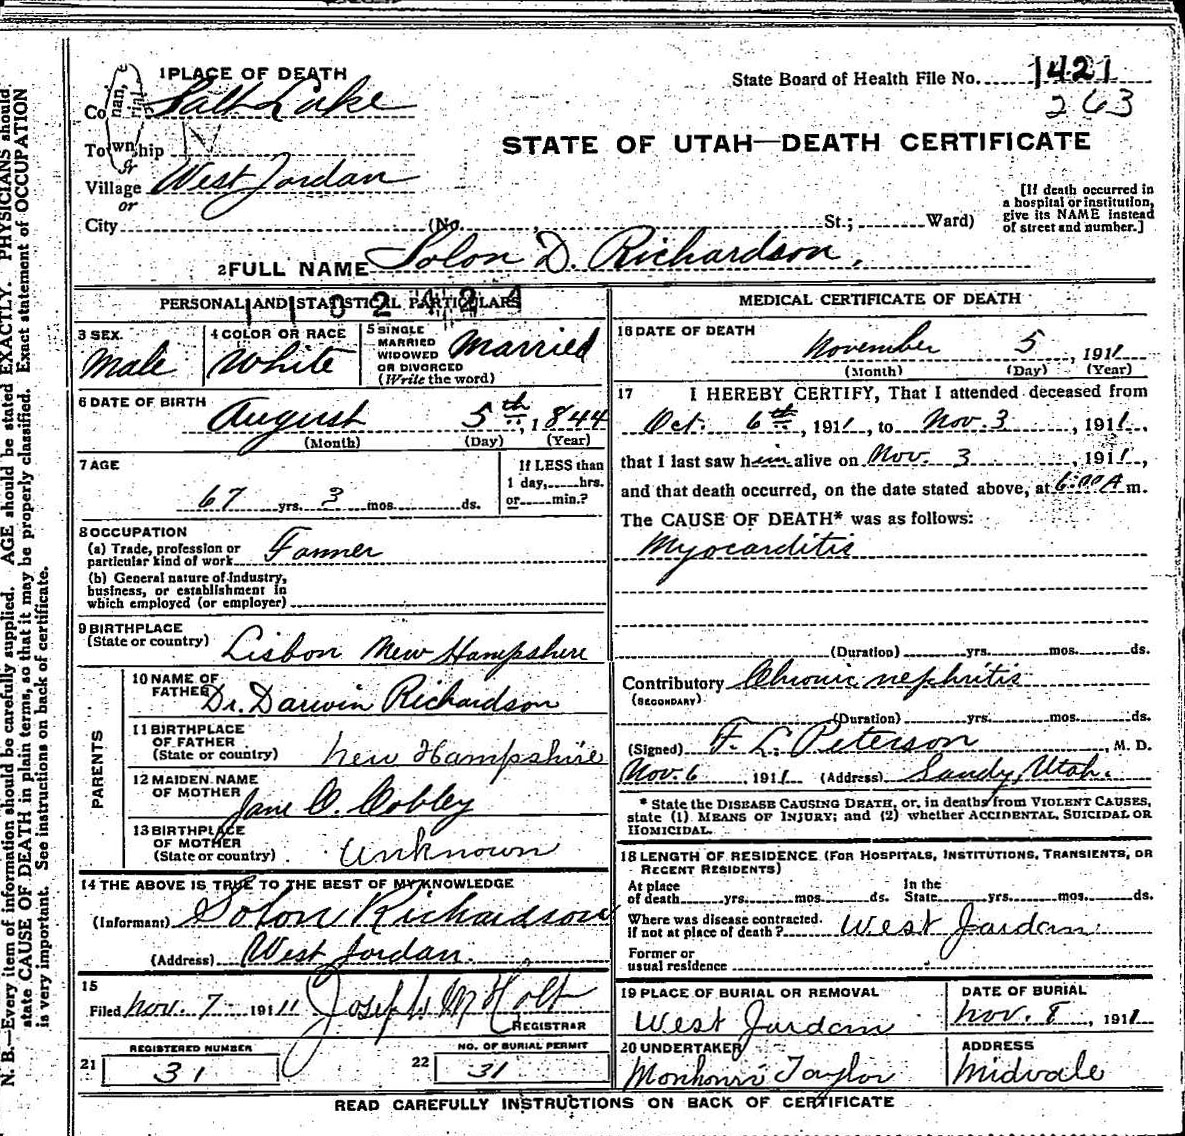 1 PLACE OF DEATH
State Board of Health File No. 1421
263
Co Salt Lake
STATE OF UTAH—DEATH CERTIFICATE
Township
or
Village West Jordan
or
City (No. St.; Ward)
[If death occurred in
a hospital or institution,
give its NAME instead
of street and number.]
2 FULL NAME Solon D. Richardson
PERSONAL AND STATISTICAL PARTICULARS
3 SEX
Male
4 COLOR OR RACE
White
5 SINGLE
MARRIED
WIDOWED
OR DIVORCED
(Write the word)
Married
6 DATE OF BIRTH
August 5th, 1844
(Month) (Day) (Year)
7 AGE
67 yrs. 3 mos. ds.
If LESS than
1 day, hrs.
or min.?
8 OCCUPATION
(a) Trade, profession or
particular kind of work Farmer
(b) General nature of Industry,
business, or establishment in
which employed (or employer)
9 BIRTHPLACE
(State or country) Lisbon New Hampshire
PARENTS
10 NAME OF
FATHER Dr. Darwin Richardson
11 BIRTHPLACE
OF FATHER
(State or country) New Hampshire
12 MAIDEN NAME
OF MOTHER Jane C. Cobley
13 BIRTHPLACE
OF MOTHER
(State or country) Unknown
14 THE ABOVE IS TRUE TO THE BEST OF MY KNOWLEDGE
(Informant) Solon Richardson
(Address) West Jordan
15
Filed Nov. 7 1911 Joseph M Holt
REGISTRAR
21 REGISTERED NUMBER
31
22 NO. OF BURIAL PERMIT
31
MEDICAL CERTIFICATE OF DEATH
16 DATE OF DEATH
November 5, 1911
(Month) (Day) (Year)
17 I HEREBY CERTIFY, That I attended deceased from
Oct. 6th, 1911, to Nov. 3, 1911,
that I last saw him alive on Nov. 3, 1911,
and that death occurred, on the date stated above, at 6:00 A m.
The CAUSE OF DEATH* was as follows:
Myocarditis
(Duration) yrs. mos. ds.
Contributory Chronic nephritis
(SECONDARY)
(Duration) yrs. mos. ds.
(Signed) F. L. Peterson, M. D.
Nov. 6, 1911 (Address) Sandy, Utah.
* State the DISEASE CAUSING DEATH, or, in deaths from VIOLENT CAUSES,
state (1) MEANS OF INJURY; and (2) whether ACCIDENTAL, SUICIDAL OR
HOMICIDAL.
18 LENGTH OF RESIDENCE (FOR HOSPITALS, INSTITUTIONS, TRANSIENTS, OR
RECENT RESIDENTS)
At place
of death yrs. mos. ds.
In the
State yrs. mos. ds.
Where was disease contracted
if not at place of death? West Jordan
Former or
usual residence
19 PLACE OF BURIAL OR REMOVAL
West Jordan
DATE OF BURIAL
Nov. 8, 1911
20 UNDERTAKER
Taylor
ADDRESS
Midvale
READ CAREFULLY INSTRUCTIONS ON BACK OF CERTIFICATE
N. B.—Every item of information should be carefully supplied. AGE should be stated EXACTLY. PHYSICIANS should
state CAUSE OF DEATH in plain terms, so that it may be properly classified. Exact statement of OCCUPATION
is very important. See instructions on back of certificate.